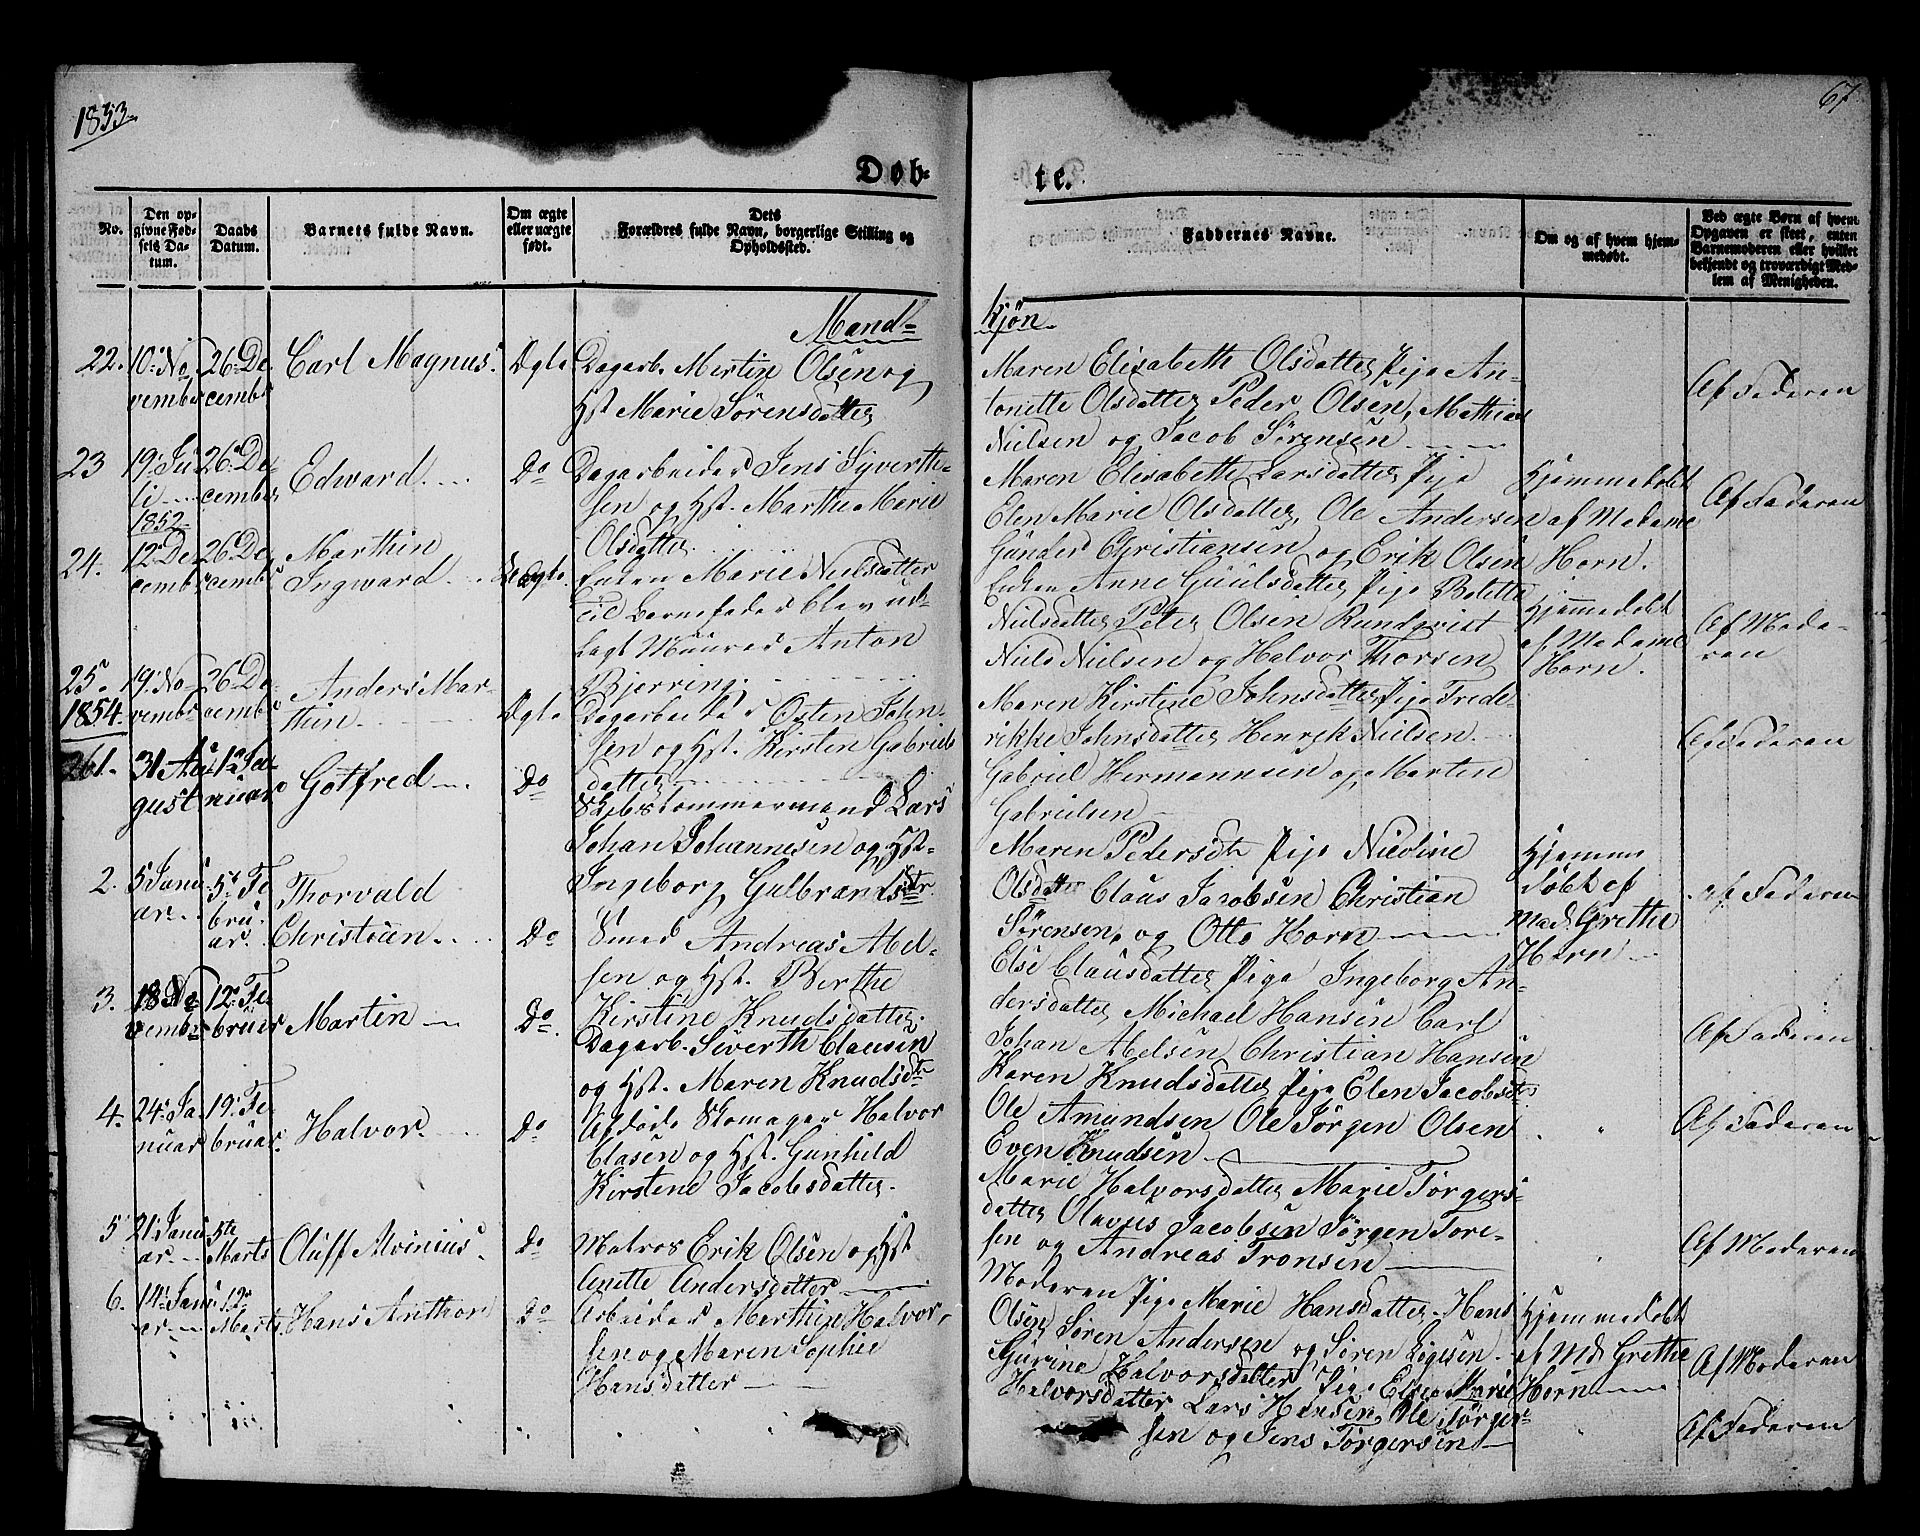 1853.
67
Døb-
te.
No.
Den op-
givne Fød-
sels Da-
tum.
Daabs
Datum.
Barnets fulde Navn.
Om ægte
eller uægte
født.
Dets
Forældres fulde Navn, borgerlige Stilling og
Opholdssted.
Faddernes Navne.
Om og af hvem hjem-
medøbt.
Ved ægte Børn af hvem
Opgaven er skeet, enten
Barnemoderen eller hvilket
bekjendt og troværdigt Med-
lem af Menigheden.
Mand-
kjøn
22. 10. No
vembr
26. De
cembr
Carl Magnus.
Ægte
Dagarb. Mertin Olsen og
Hst Marie Sørensdatter
Maren Elisabeth Olsdatter Pige An-
tonette Olsdatter Peder Olsen, Mathias
Nielsen og Jacob Sørensen
Af Faderen
23
19. Ju
li
1852
26. De
cember
Edward
Do
Dagarbeider Jens Syverth-
sen og Hst. Marthe Marie
Olsdatter
Maren Elisabeth Larsdatter Pige
Elen Marie Olsdatter, Ole Andersen
Gunder Christiansen og Erik Olsen
Hjemmedøbt
af Madame
Horn.
Af Faderen
24.
12. De
cembr
26. De
cembr
Marthin
Ingward
Uægte.
Enken Marie Nielsdatter
til Barnefader blev ud-
lagt Muurer Anton
Bjerring.
Enken Anne Guulsdatter Pige Boletta
Nielsdatter Peter Olsen Rundqvist
Niels Nielsen og Halvor Thorsen
Hjemmedøbt
af Madame
Horn.
Af Mode-
ren
25.
19. No
vembr
26. De
cembr
Anders Mar-
thin
Ægte
Dagarbeider Østen John-
sen og Hst. Kirsten Gabriels
datter
Maren Kirstine Johnsdatter Pige Frede-
rikke Johnsdatter Henrik Nielsen
Gabriel Hermannsen og Marten
Gabrielsen
Af Faderen
1854.
1.
31 Au
gust
1. Ja-
nuar
Gotfred
Do
Skibstømmermand Lars
Johan Johannesen og Hst.
Ingeborg Gulbrandsdtr
Maren Pedersdtr Pige Nicoline
Olsdatter Claus Jacobsen Christian
Sørensen, og Otto Horn
Hjemme
døbt af
Mad. Grethe
Horn
Af Faderen
2.
5 Janu
ar.
5. Fe
bru-
ar.
Thorvald
Christian
Do
Smed Andreas Abel-
sen og Hst. Berthe
Kirstine Knudsdatter.
Else Clausdatter Pige Ingeborg An-
dersdatter Michael Hansen Carl
Johan Abelsen Christian Hansen
Af Faderen
3.
18 De
cembr
12. Fe
bruar
Martin
Do
Dagarb. Siverth Clausen
og Hst. Maren Knudsdtr
Karen Knudsdatter Pige Elen Jacobsdtr
Ole Amundsen Ole Jørgen Olsen
Even Knudsen
Af Faderen
4.
24. Ja
nuar
19. Fe
bruar
Halvor.
Do
Afdøde Skomager Halvor
Clasen og Hst. Gunhild
Kirstine Jacobsdatter.
Marie Halvorsdatter Marie Jørgens-
datter Olavus Jacobsen Jørgen Tore-
sen og Andreas Tronsen
Af Moderen
5
21. Janu
ar
5te
Marts
Oluff Alvinius.
Do
Matros Erik Olsen og Hst
Anette Andersdatter
Moderen Pige Marie Hansdatter. Hans
Olsen Søren Andersen og Søren
Af Moderen
6.
14. Janu
ar
12.
Marts
Hans Anthon
Do
Arbeider Marthin Halvor-
sen og Maren Sophie
Hansdatter
Gurine Halvorsdatter Pige Elise Marie
Halvorsdatter Lars Hansen, Ole Jørgen-
sen og Jens Jørgensen
Hjemmedøbt
af Md. Grethe
Horn
Af Faderen